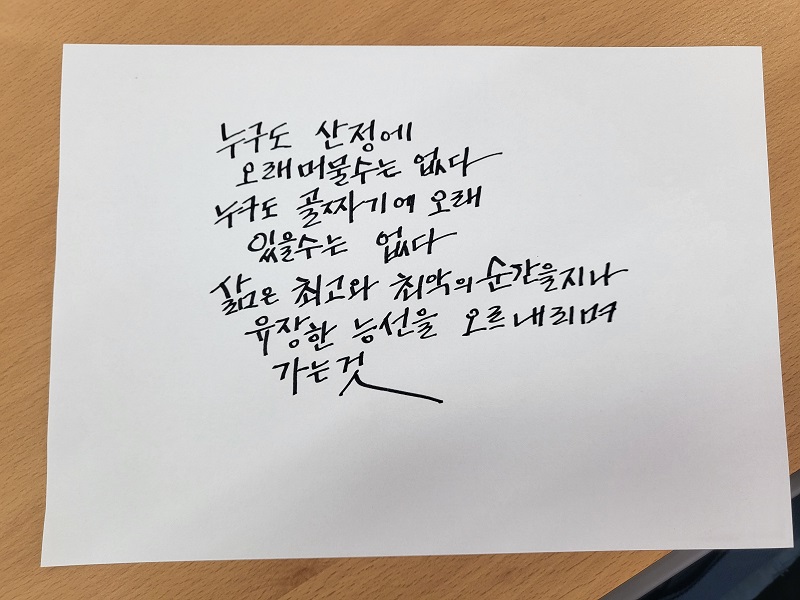 누구도 산정에
오래 머물수는 없다
누구도 골짜기에 오래
있을수는 없다
삶은 최고와 최악의 순간을 지나
유장한 능선을 오르내리며
가는것